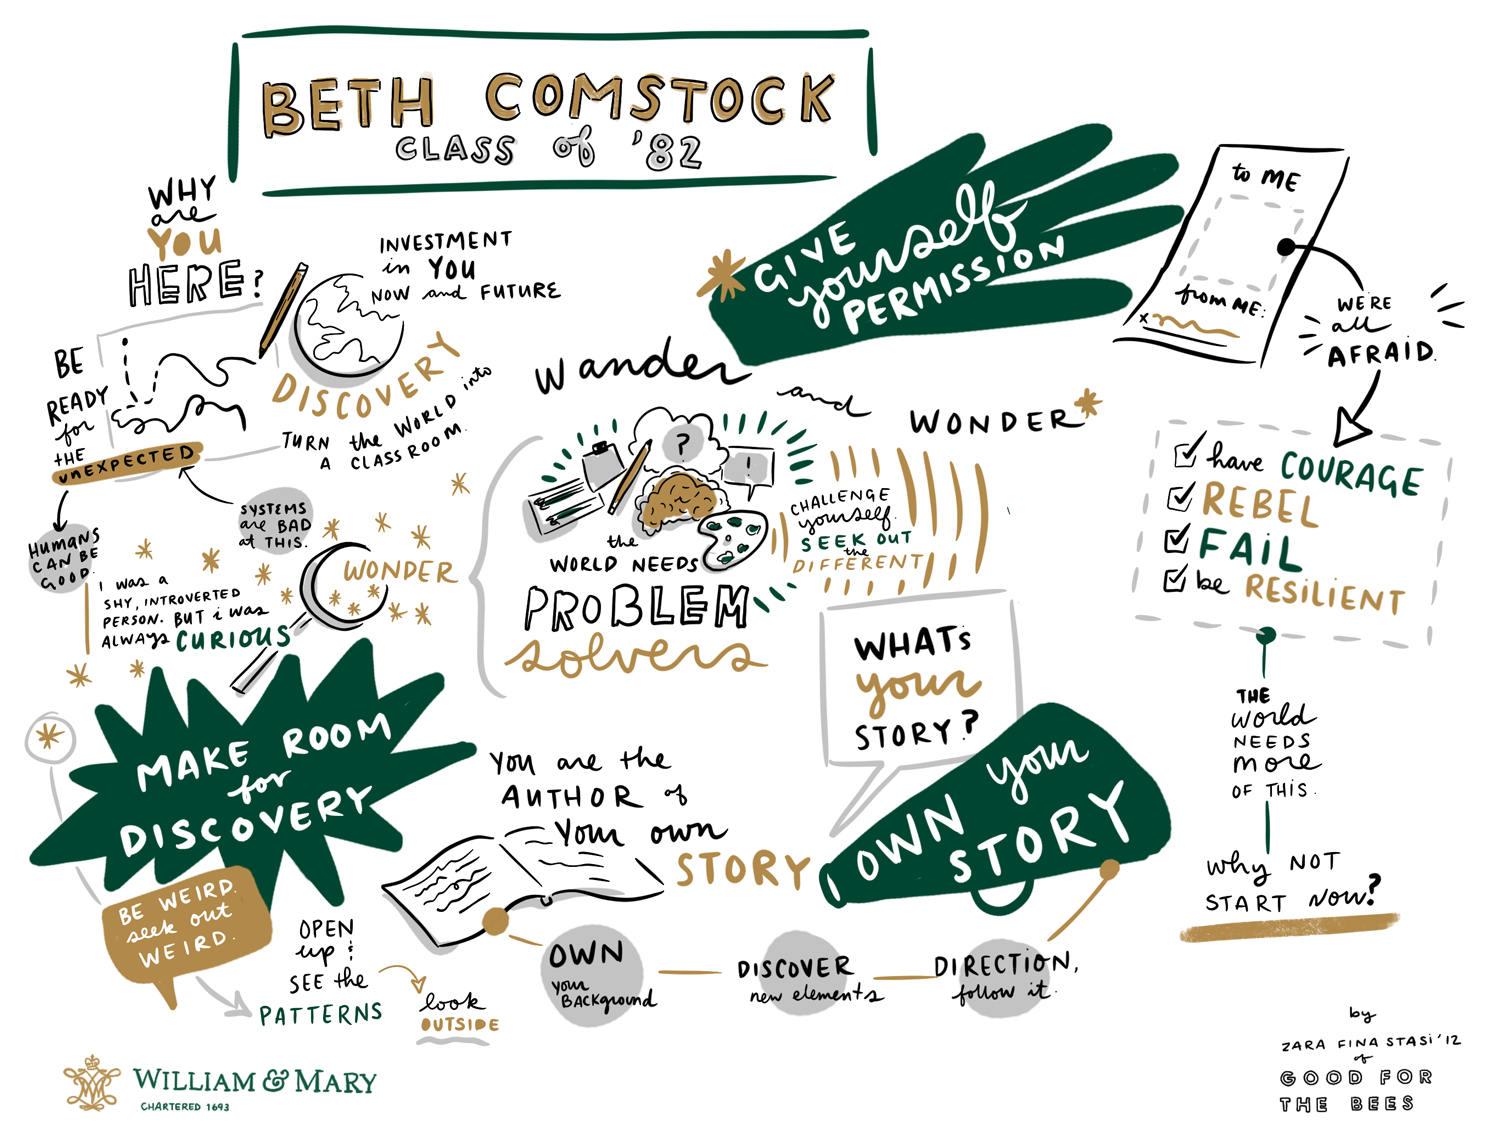 BETH COMSTOCK
CLASS of '82
WHY
are
YOU
HERE?
INVESTMENT
in YOU
NOW and FUTURE
DISCOVERY
TURN the WORLD into
A CLASSROOM.
BE
READY
for
THE
unEXPECTED
HUMANS
CAN BE
GOOD.
SYSTEMS
are BAD
at THIS.
I WAS A
SHY, INTROVERTED
PERSON. BUT i WAS
ALWAYS CURIOUS
WONDER
MAKE ROOM
for
DISCOVERY
BE WEIRD.
seek out
WEIRD.
OPEN
up &
SEE the
PATTERNS
look
OUTSIDE
GIVE
yourself
PERMISSION
to ME
from ME:
x
WE'RE
all
AFRAID.
have COURAGE
REBEL
FAiL
be RESiLiENT
THE
World
NEEDS
more
OF THIS.
Why NOT
START NOW?
Wander
and
WONDER
?
!
the
WORLD NEEDS
PROBLEM
solvers
CHALLENGE
yourself.
SEEK OUT
the
DIFFERENT
WHATs
your
STORY?
OWN your
STORY
You are the
AUTHOR of
Your own
STORY
OWN
your
BACKground
DISCOVER
new elements
DIRECTION,
follow it.
by
ZARA FINA STASi '12
of
GOOD FOR
THE BEES
WILLIAM & MARY
CHARTERED 1693